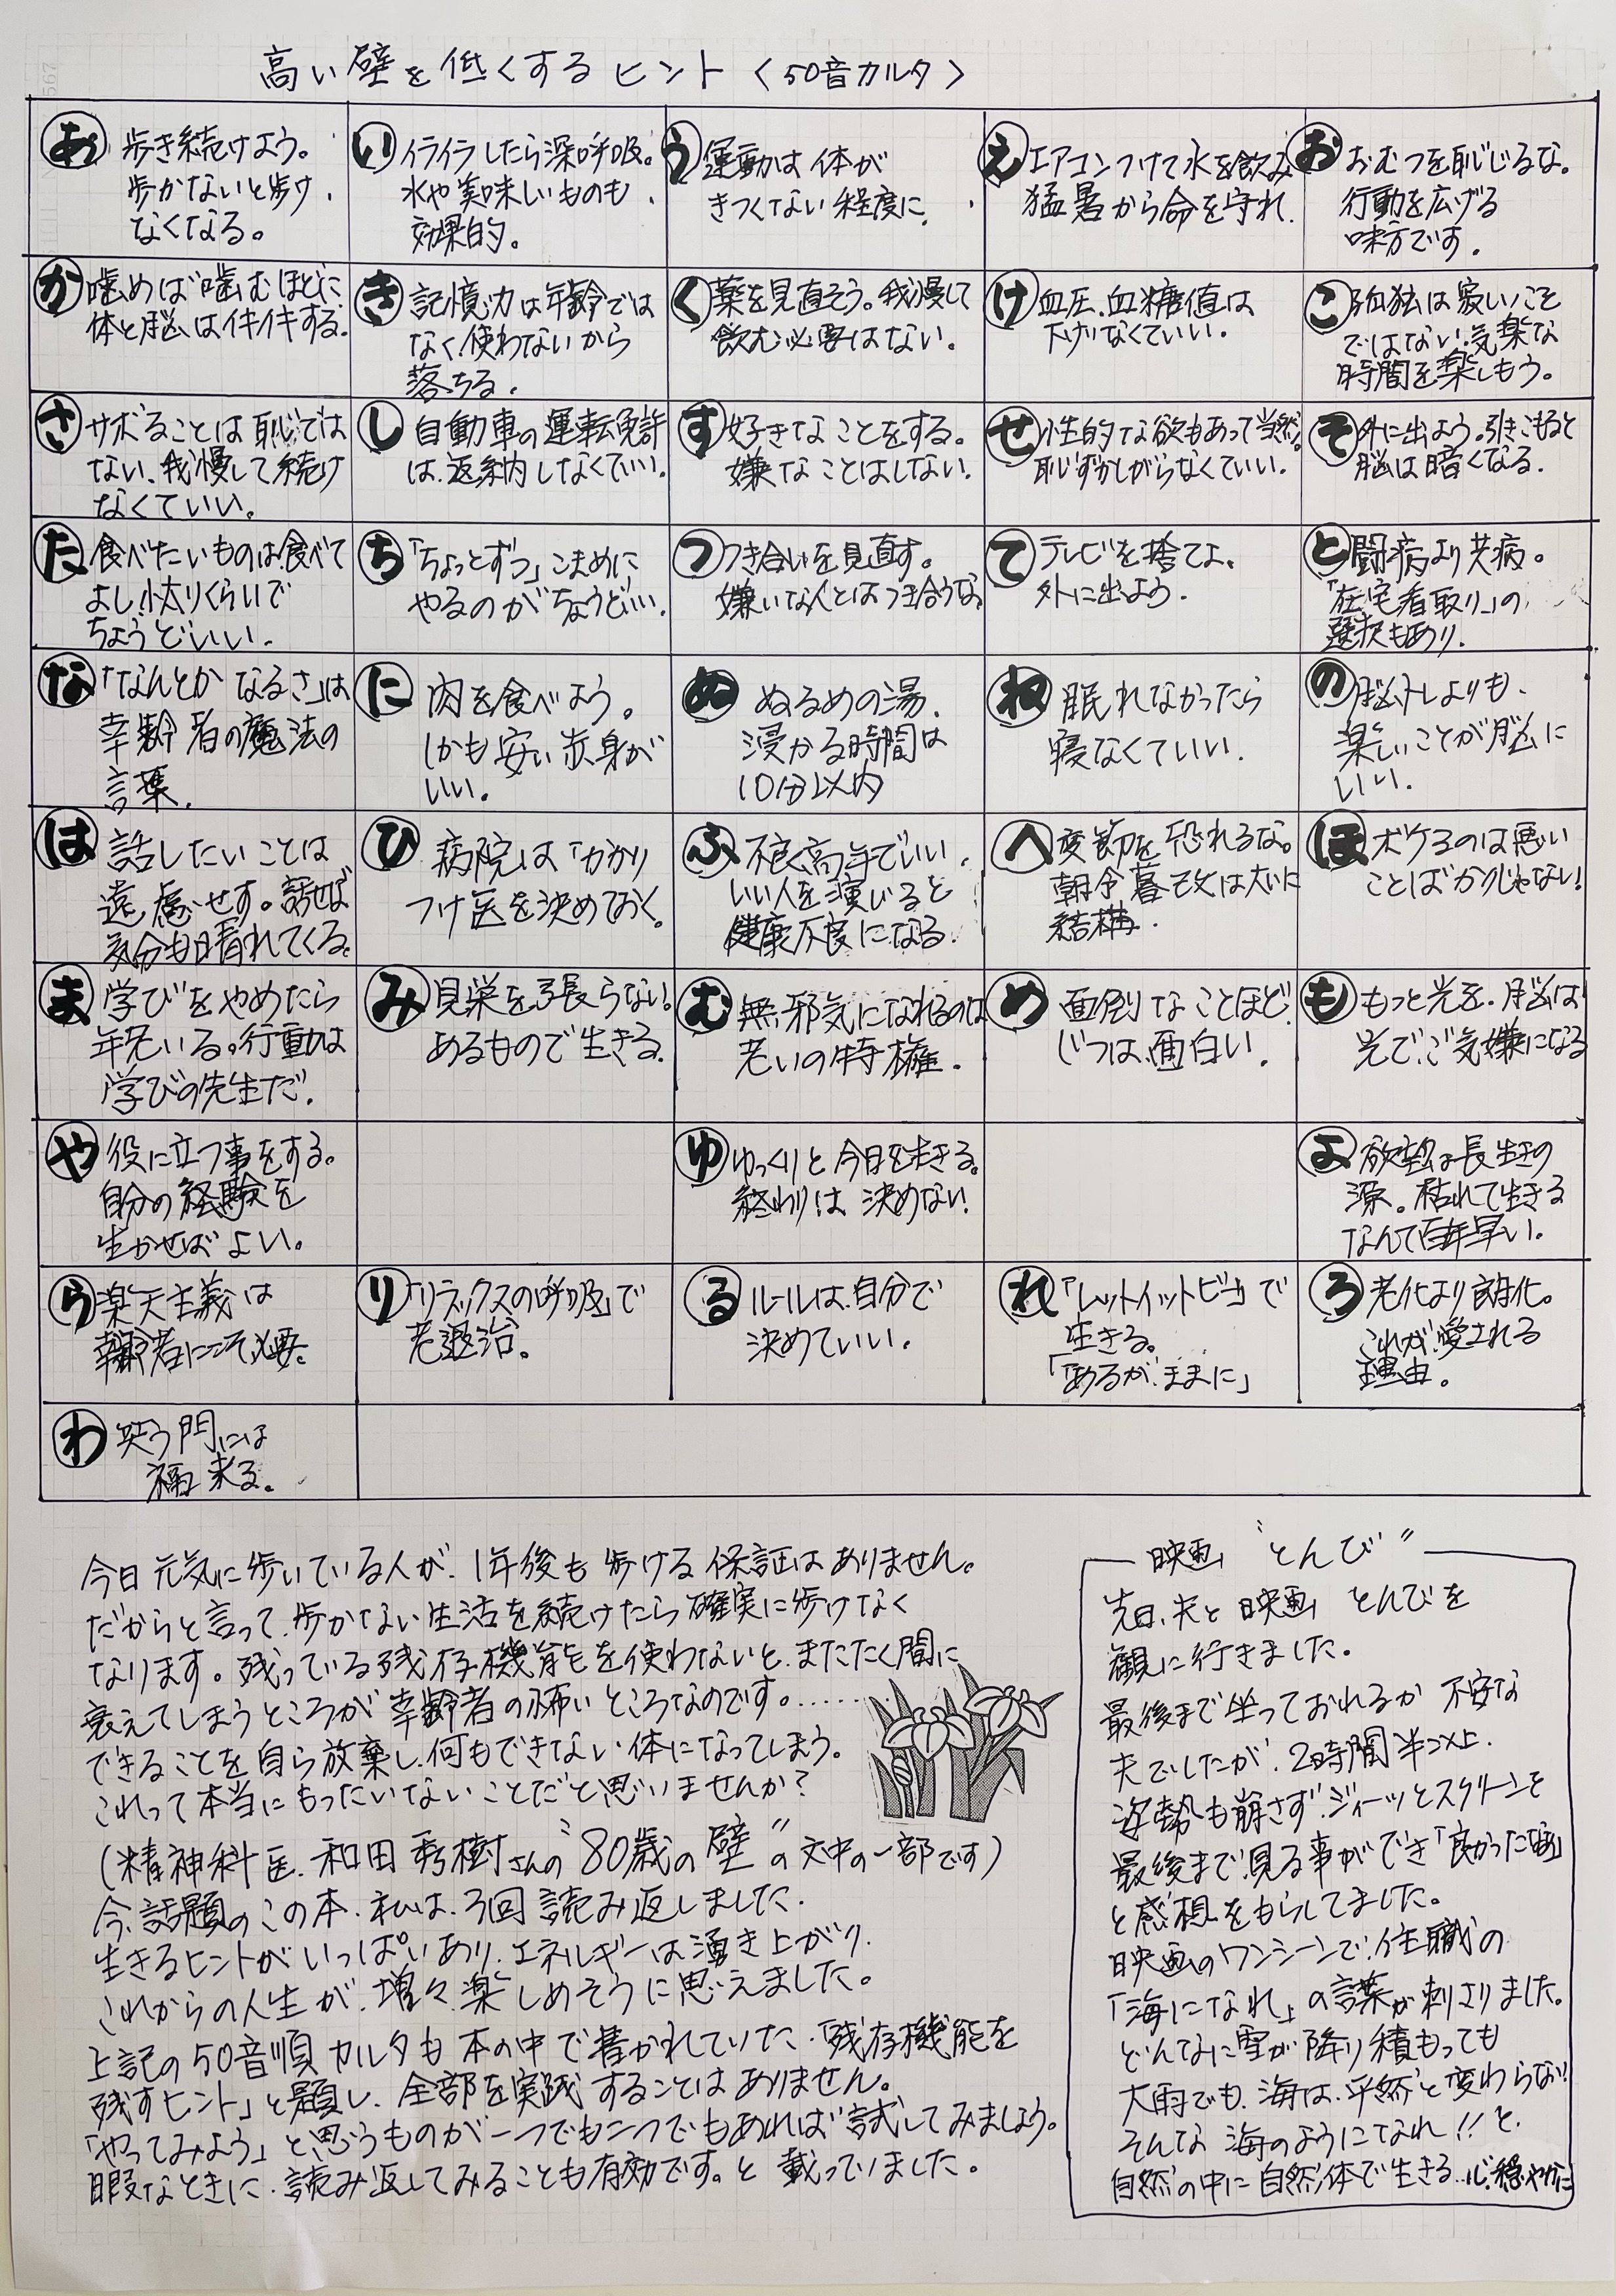 高い壁を低くするヒント〈50音カルタ〉
あ 歩き続けよう。
歩かないと歩け
なくなる。
い イライラしたら深呼吸。
水や美味しいものも
効果的。
う 運動は体が
きつくない程度に.
え エアコンつけて水を飲み
猛暑から命を守れ.
お おむつを恥じるな。
行動を広げる
味方です.
か 噛めば噛むほどに
体と脳はイキイキする.
き 記憶力は年齢では
なく、使わないから
落ちる.
く 薬を見直そう。我慢して
飲む必要はない.
け 血圧、血糖値は
下げなくていい.
こ 孤独は寂しいこと
ではない.気楽な
時間を楽しもう。
さ サボることは恥では
ない、我慢して続け
なくていい。
し 自動車の運転免許
は、返納しなくていい.
す 好きなことをする。
嫌なことはしない.
せ 性的な欲もあって当然。
恥ずかしがらなくていい.
そ 外に出よう。引きこもると
脳は暗くなる.
た 食べたいものは食べて
よし、小太りくらいで
ちょうどいい.
ち 「ちょっとずつ」こまめに
やるのがちょうどいい.
つ つき合いを見直す。
嫌いな人とはつき合うな.
て テレビを捨てよ、
外に出よう.
と 闘病より共病。
「在宅看取り」の
選択もあり.
な 「なんとかなるさ」は
幸齢者の魔法の
言葉.
に 肉を食べよう。
しかも安い赤身が
いい.
ぬ ぬるめの湯.
浸かる時間は
10分以内
ね 眠れなかったら
寝なくていい.
の 脳トレよりも、
楽しいことが脳に
いい.
は 話したいことは
遠慮せず。話せば
気分も晴れてくる。
ひ 病院は「かかり
つけ医を決めておく。
ふ 不良高年でいい.
いい人を演じると
健康不良になる.
へ 変節を恐れるな。
朝令暮改は大いに
結構.
ほ ボケるのは悪い
ことばかりじゃない!
ま 学びをやめたら
年老いる。行動は
学びの先生だ.
み 見栄を張らない。
あるもので生きる.
む 無邪気になれるのは
老いの特権.
め 面倒なことほど
じつは、面白い.
も もっと光を.脳は
光で、ご気嫌になる
や 役に立つ事をする。
自分の経験を
生かせばよい。
ゆ ゆっくりと今日を生きる。
終わりは決めない!
よ 欲望は長生きの
源。枯れて生きる
なんて百年早い.
ら 楽天主義は
幸齢者にこそ必要.
り 「リラックスの呼吸」で
老退治.
る ルールは自分で
決めていい.
れ 「レットイットビー」で
生きる。
「あるがままに」
ろ 老化より良化。
これが愛される
理由。
わ 笑う門には
福来る。
今日元気に歩いている人が、1年後も歩ける保証はありません。
だからと言って、歩かない生活を続けたら確実に歩けなく
なります。残っている残存機能を使わないと、またたく間に
衰えてしまうところが幸齢者の怖いところなのです。……
できることを自ら放棄し、何もできない体になってしまう。
これって本当にもったいないことだと思いませんか?
(精神科医.和田秀樹さんの〝80歳の壁〞の文中の一部です)
今、話題のこの本.私は、3回読み返しました.
生きるヒントがいっぱいあり、エネルギーは湧き上がり.
これからの人生が、増々楽しめそうに思えました。
上記の50音順カルタも本の中で書かれていた.「残存機能を
残すヒント」と題し、全部を実践することはありません。
「やってみよう」と思うものが一つでも二つでもあれば試してみましょう。
暇なときに.読み返してみることも有効です。と載っていました。
映画〝とんび〞
先日、夫と映画とんびを
観に行きました。
最後まで坐っておれるか不安な
夫でしたが、2時間半以上.
姿勢も崩さず.ジィーッとスクリーンを
最後まで見る事ができ「良かった
と感想をもらしてました。
映画のワンシーンで、住職の
「海になれ」の言葉が刺さりました。
どんなに雪が降り積もっても
大雨でも、海は、平然と変わらない!
そんな海のようになれ!!と.
自然の中に自然体で生きる..心穏やかに